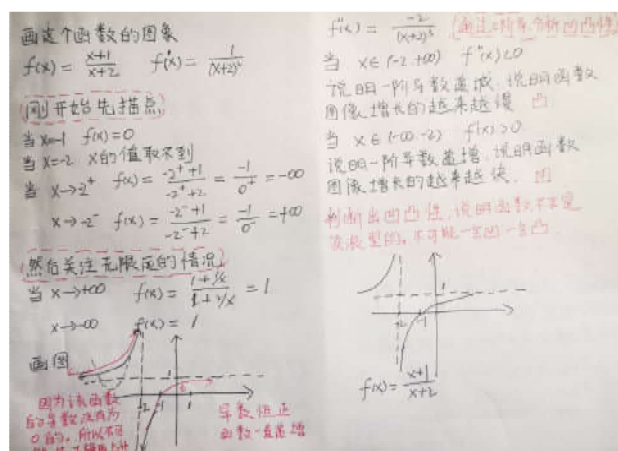 画这个函数的图象
f(x) = (x+1)/(x+2) f'(x) = 1/(x+2)²
刚开始先描点
当x=-1 f(x)=0
当x=-2 x的值取不到
当 x→-2⁺ f(x) = (-2⁺+1)/(-2⁺+2) = -1/0⁺ = -∞
x→-2⁻ f(x) = (-2⁻+1)/(-2⁻+2) = -1/0⁻ = +∞
然后关注无限远的情况
当 x→+∞ f(x) = (1+1/x)/(1+2/x) = 1
x→-∞ f(x) = 1
画图
因为该函数
的导数没有为
0的,所以不可
导数恒正
函数一直递增
-2 -1 1
f''(x) = -2/(x+2)³ 通过二阶导分析凹凸性
当 x∈(-2 +∞) f''(x)<0
说明一阶导数递减,说明函数
图像增长的越来越慢 凸
当 x∈(-∞ -2) f''(x)>0
说明一阶导数递增,说明函数
图像增长的越来越快 凹
判断出凹凸性,说明函数不会是
波浪型的,不可能一会凹一会凸
1
-2 -1
f(x) = (x+1)/(x+2)